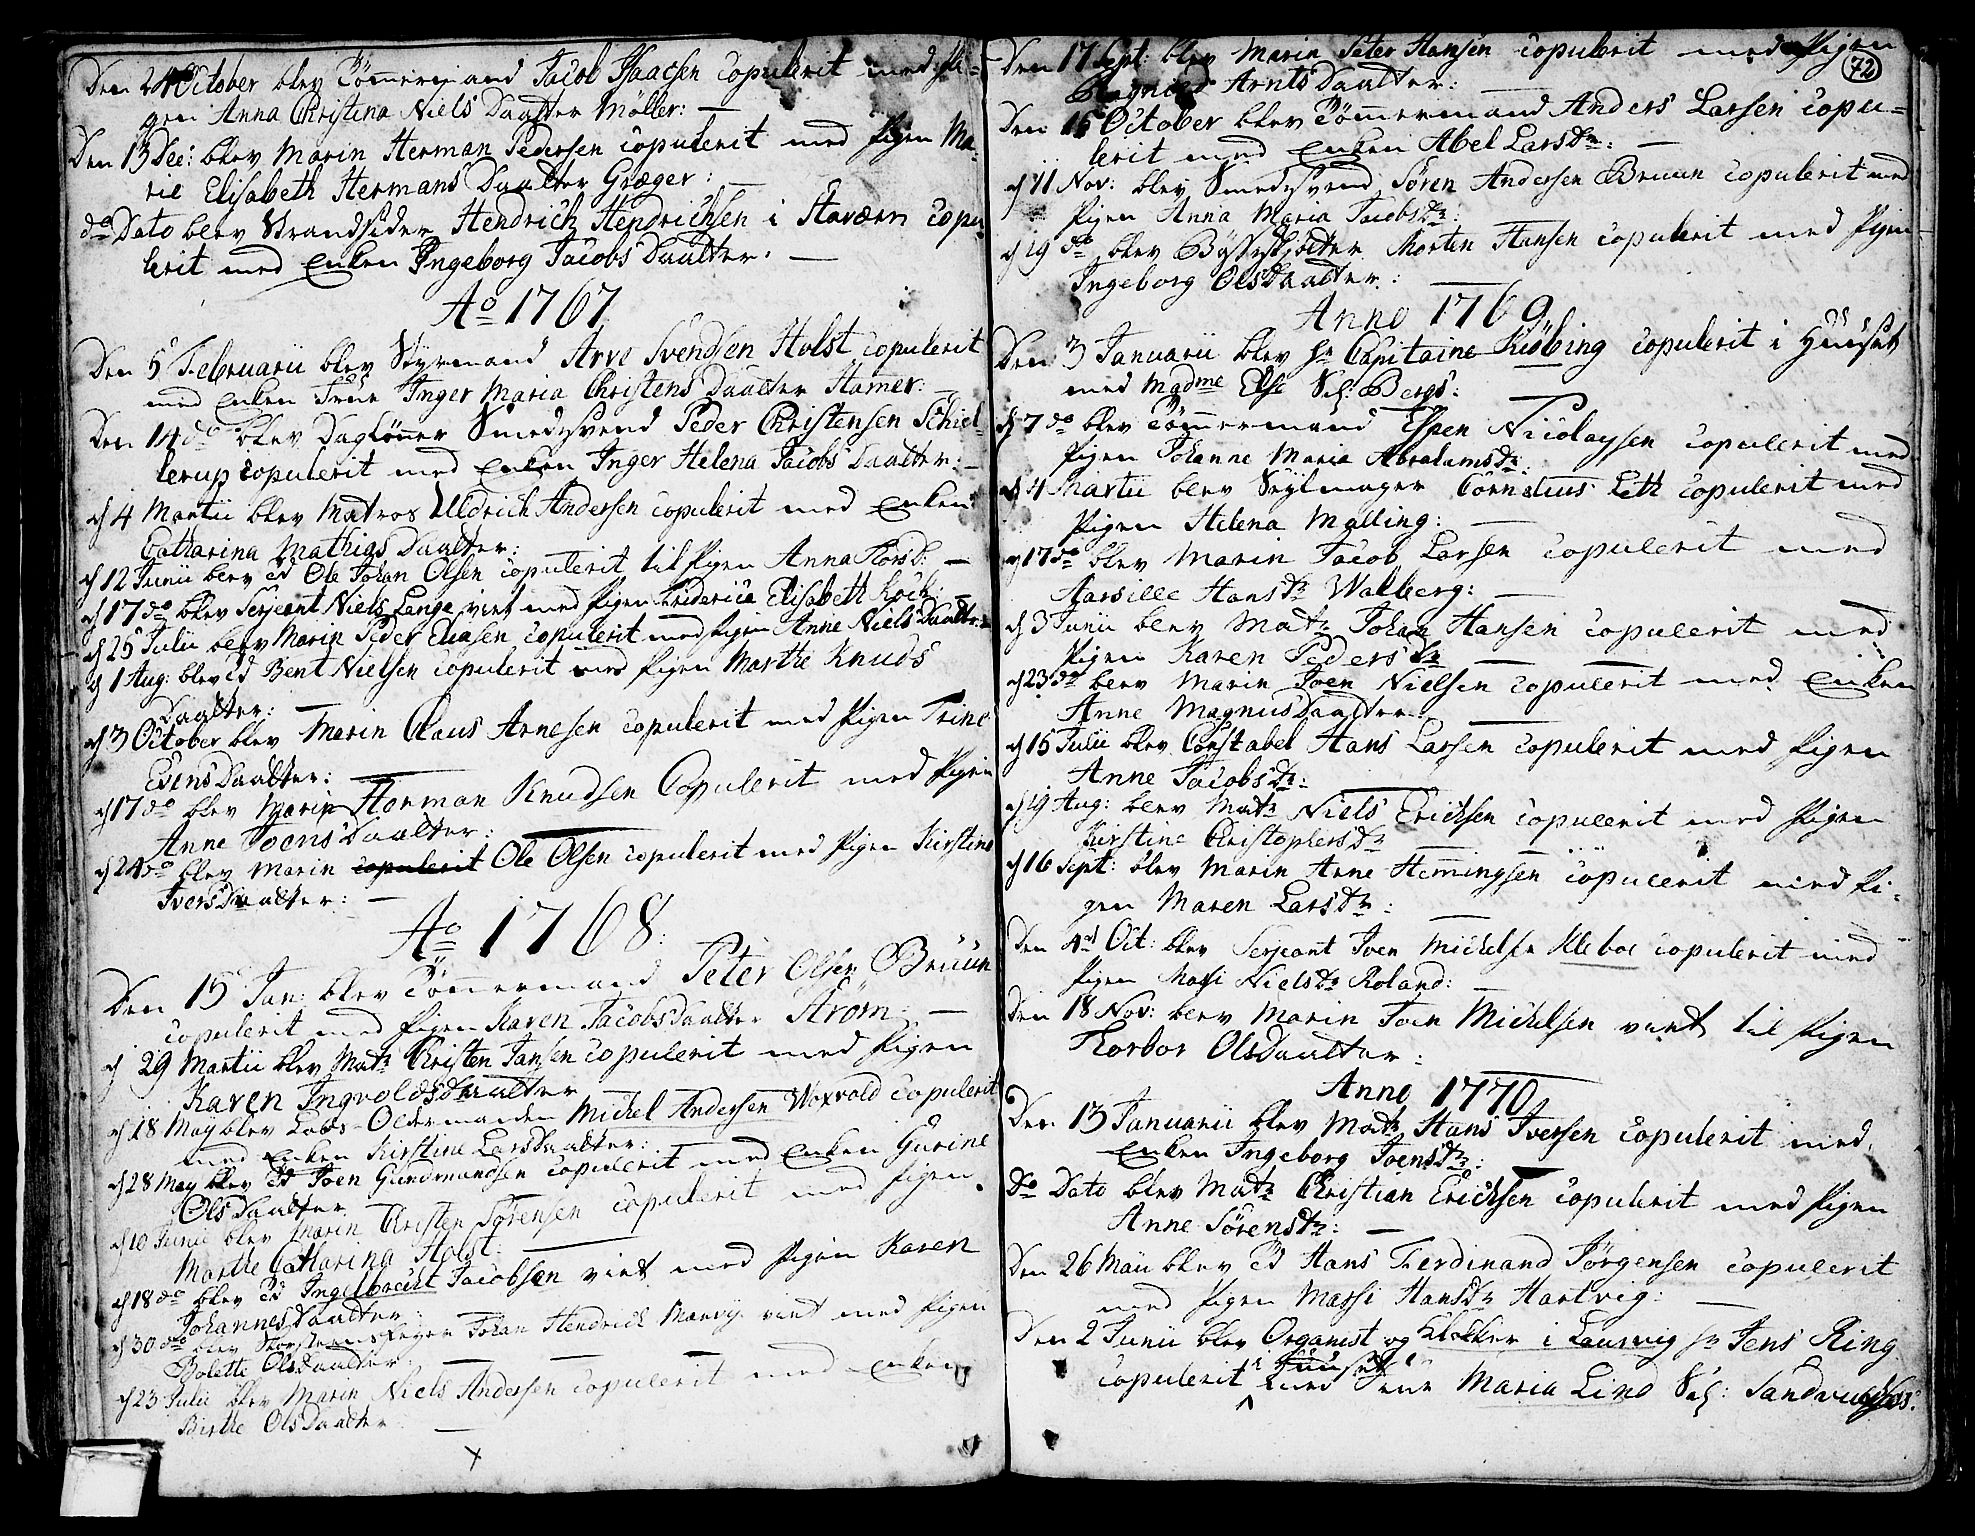 Den 24 October blev Tömermand Jacob Isaacsen copulerit med Pi-
gen Anna Christina Niels Daatter Möller: —
Den 13 Dec: blev Marin Herman Pedersen copulerit med Pigen Ma-
rie Elisabeth Hermans Daatter Græger: —
do Dato blev Strandsider Hendrich Hendrichsen i Staværn copu-
lerit med Enken Ingeborg Jacobs Daatter: —
Ao 1767
Den 5 Februarii blev Styrmand Arve Svendsen Holst copulerit
med Enken Frue Inger Maria Christens Daatter Hamer: —
Den 14 do blev Daglönner Smedesvend Peder Christensen Schiel-
lerup copulerit med Enken Inger Helena Jacobs Daatter: —
d 4 Martii blev Matros Uldrich Andersen copulerit med Enken
Catharina Mathias Daatter:
d 12 Junii blev Ole Johan Olsen copulerit til Pigen Anna Torsd: —
d 17 do blev Serjeant Niels Lange viet med Pigen Friderica Elisabeth Koch: —
d 25 Julii blev Marin Peder Eliasen copulerit med Pigen Anne Niels Daatter
d 1 Aug: blev Bent Nielsen copulerit med Pigen Marthe Knuds
Daatter: —
d 3 October blev Marin Claus Arnesen copulerit med Pigen Trine
Evens Daatter: —
d 17 do blev Marin Herman Knudsen Copulerit med Pigen
Anne Joens Daatter: —
d 24 do blev Marin copulerit Ole Olsen copulerit med Pigen Kirstine
Ivers Daatter: —
Ao 1768:
Den 15 Jan: blev Tömermand Peter Olsen Bruun
copulerit med Pigen Karen Jacobs Daatter Ström —
d 29 Martii blev Matr Christen Jansen copulerit med Pigen
Karen Ingvolds Daatter
d 18 May blev Lods-Oldermanden Michel Andersen Woxvold copulerit
med Enken Kirstine Lars Daatter:
d 28 May blev Joen Gundmundsen copulerit med Enken Gurine
Ols Daatter
d 10 Junii blev Marin Christen Sörensen copulerit med Pigen
Marthe Catharina Holst: —
d 18 do blev Ingelbrecht Jacobsen viet med Pigen Karen
Johannes Daatter:
d 30 do blev Skorsteensfeyer Johan Hendrich viet med Pigen
Bolette Ols Daatter: —
d 23 Julii blev Marin Niels Andersen copulerit med Enken
Birthe Ols Daatter —
Den 17 Sept: blev Marin Peter Hansen copulerit med Pigen
72
Arnts Daatter: —
Den 15 October blev Tömermand Anders Larsen copu-
lerit med Enken Abel Larsdr: —
d 11 Nov: blev Smedesvend Sören Andersen Bruun copulerit med
Pigen Anna Maria Jacobsdr:
d 19 do blev Bösseskjötter Morten Hansen copulerit med Pigen
Ingeborg Ols Daatter:
Anno 1769
Den 3 Januarii blev Hr Capitaine Kiöbing copulerit i Huuset
med Madme Else Sl: Bergs:
d 7 do blev Tömermand Espen Nicolaysen copulerit med
Pigen Johanne Maria Abrahamsdr:
d 4 Martii blev Seylmager Cornelius Lett copulerit med
Pigen Helena Malling: —
d 17 do blev Marin Jacob Larsen copulerit med
Aarsille Hansdr Walberg: —
d 3 Junii blev Matr Johan Hansen copulerit med
Pigen Karen Pedersdr —
d 23 do blev Marin Joen Nielsen copulerit med Enken
Anne Magnus Daatter —
d 15 Julii blev Constabel Hans Larsen copulerit med Pigen
Anne Jacobsdr: —
d 19 Aug: blev Matr Niels Erichsen copulerit med Pigen
Kirstine Christophersdr —
d 16 Sept: blev Marin Arne Hemmingsen copulerit med Pi-
gen Maren Larsdr: —
Den 4d Oct: blev Serjeant Joen Michelsen Kleboe copulerit med
Pigen Massi Nielsdr Roland: —
Den 18 Nov: blev Marin Joen Michelsen viet til Pigen
Torbor Ols Daatter:
Anno 1770
Den 13 Januarii blev Matr Hans Iversen copulerit med
Enken Ingeborg Joensdr:
Do Dato blev Matr Christian Erichsen copulerit med Pigen
Anne Sörensdr: —
Den 26 Maii blev Hans Ferdinand Jörgensen copulerit
med Pigen Massi Hansdr Hartvig: —
Den 2 Junii blev Organist og Klokker i Laurvig Hr Jens Ring
copulerit i Huuset med Frue Maria Lind Sal: